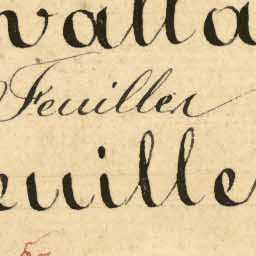 valla
Feuiller
euille